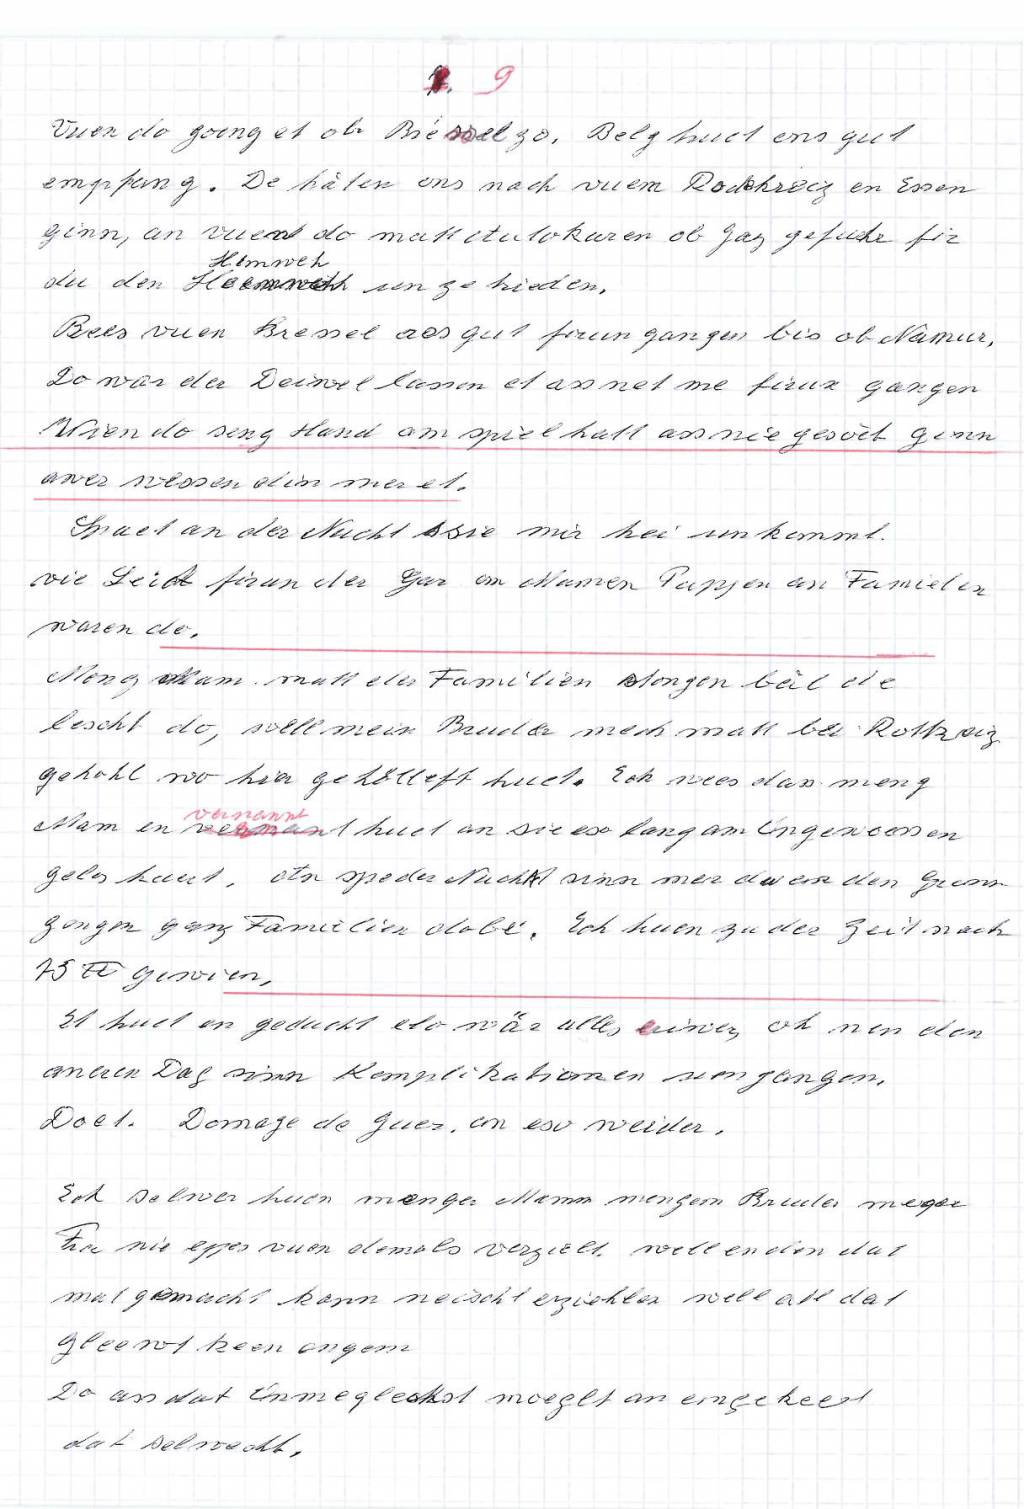 9
Vuen do goeng et ob Bressel zo. Belg huet ens gut
empfang. De häten ons nach vuem Rodekreiz en Essen
ginn, an vuen do matt Autokaren ob Gaz gefuehr fir
du den Hemweh unzetrieden.
Bees vuen Bressel ass gut firun gangen bis ob Namur.
Do war der Deiwel lassen et ass net me firux gangen
Wien do seng Hand am spiel hatt ass nie gesöt ginn
awer wessen din mer et.
Spuet an der Nucht ssie mir hei unkommt.
vie Leid firun der Gar on Mamen Puppen an Familien
waren do.
Meng Mam matt der Familien stongen bäl die
lescht do, well mein Bruder mech matt bei Rottkreiz
geholl wo hir gehölleft huet. Ech wees dass meng
Mam en vermannt huet an sie eso lang am Ungewessen
geloss huet. An speder Nucht sinn mer dwer den Grenn
gongen ganz Familien dobei. Ech huen zu der Zeit nach
75 ℔ gewien.
Et huet en geducht elo wär alles eriwer, oh nen den
aneren Dag sinn Komplikationen ungangen.
Doet. Domage de Guer, an eso weider.
Ech selwer huen menger Mamm mengem Bruder menger
Fra nie eppes vuen demols verzielt. well en den dat
mat gemacht kann neischt erziehlen well all dat
gleewt keen engem
Do ass dat Unmegleckst moeglt an emgekeert
dat selwecht.